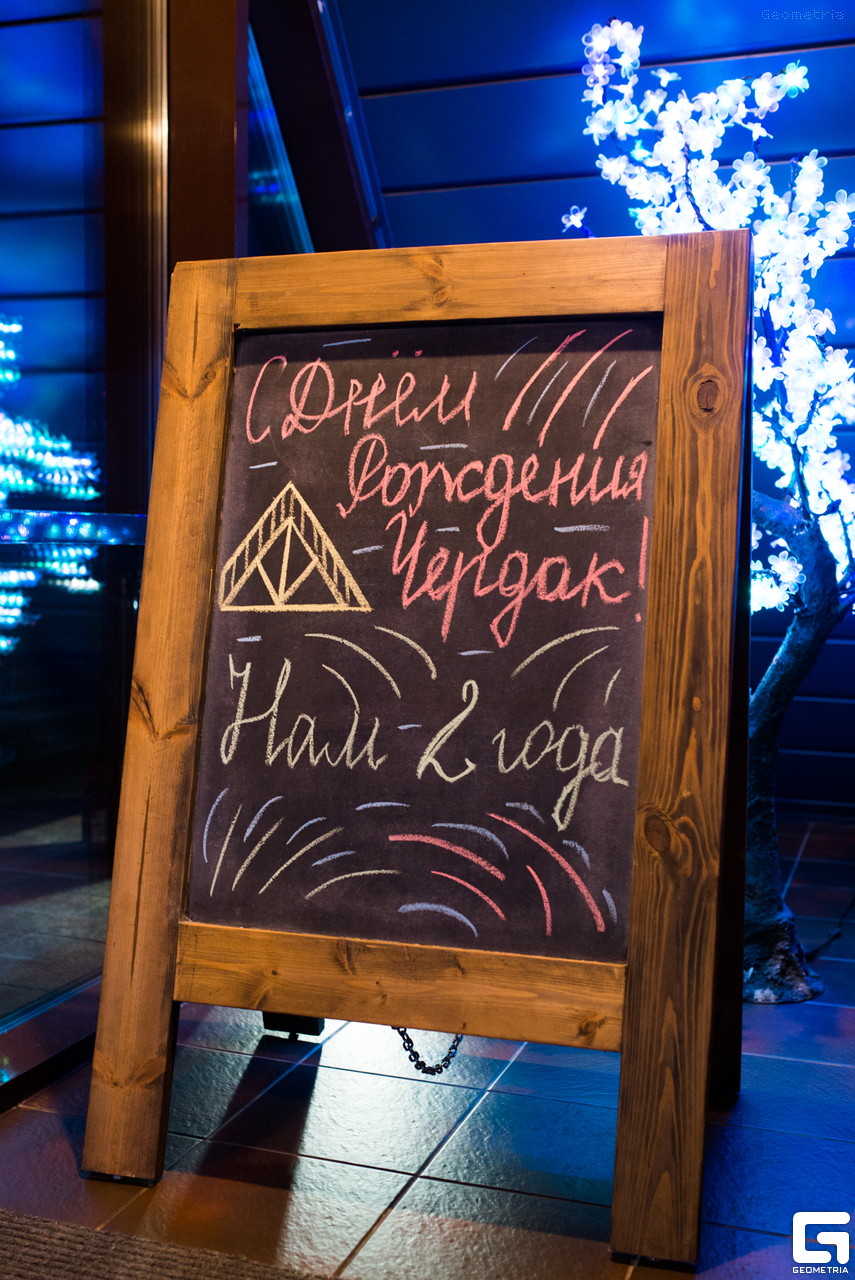 Geometria
С Днём
Рождения
Чердак!
Нам 2 года
GEOMETRIA